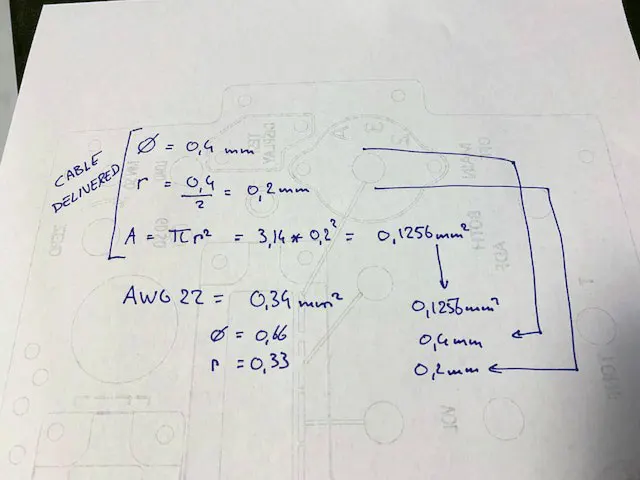 CABLE DELIVERED
Ø = 0,4 mm
r = 0,4/2 = 0,2 mm
A = πr² = 3,14 * 0,2² = 0,1256 mm²
AWG 22 = 0,34 mm² 0,1256 mm²
ø = 0,66 0,4 mm
r = 0,33 0,2 mm